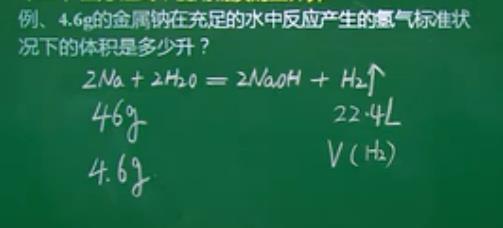 例、4.6g的金属钠在充足的水中反应产生的氢气标准状
况下的体积是多少升？
2Na + 2H2O = 2NaOH + H2↑
46g 22.4L
4.6g V(H2)